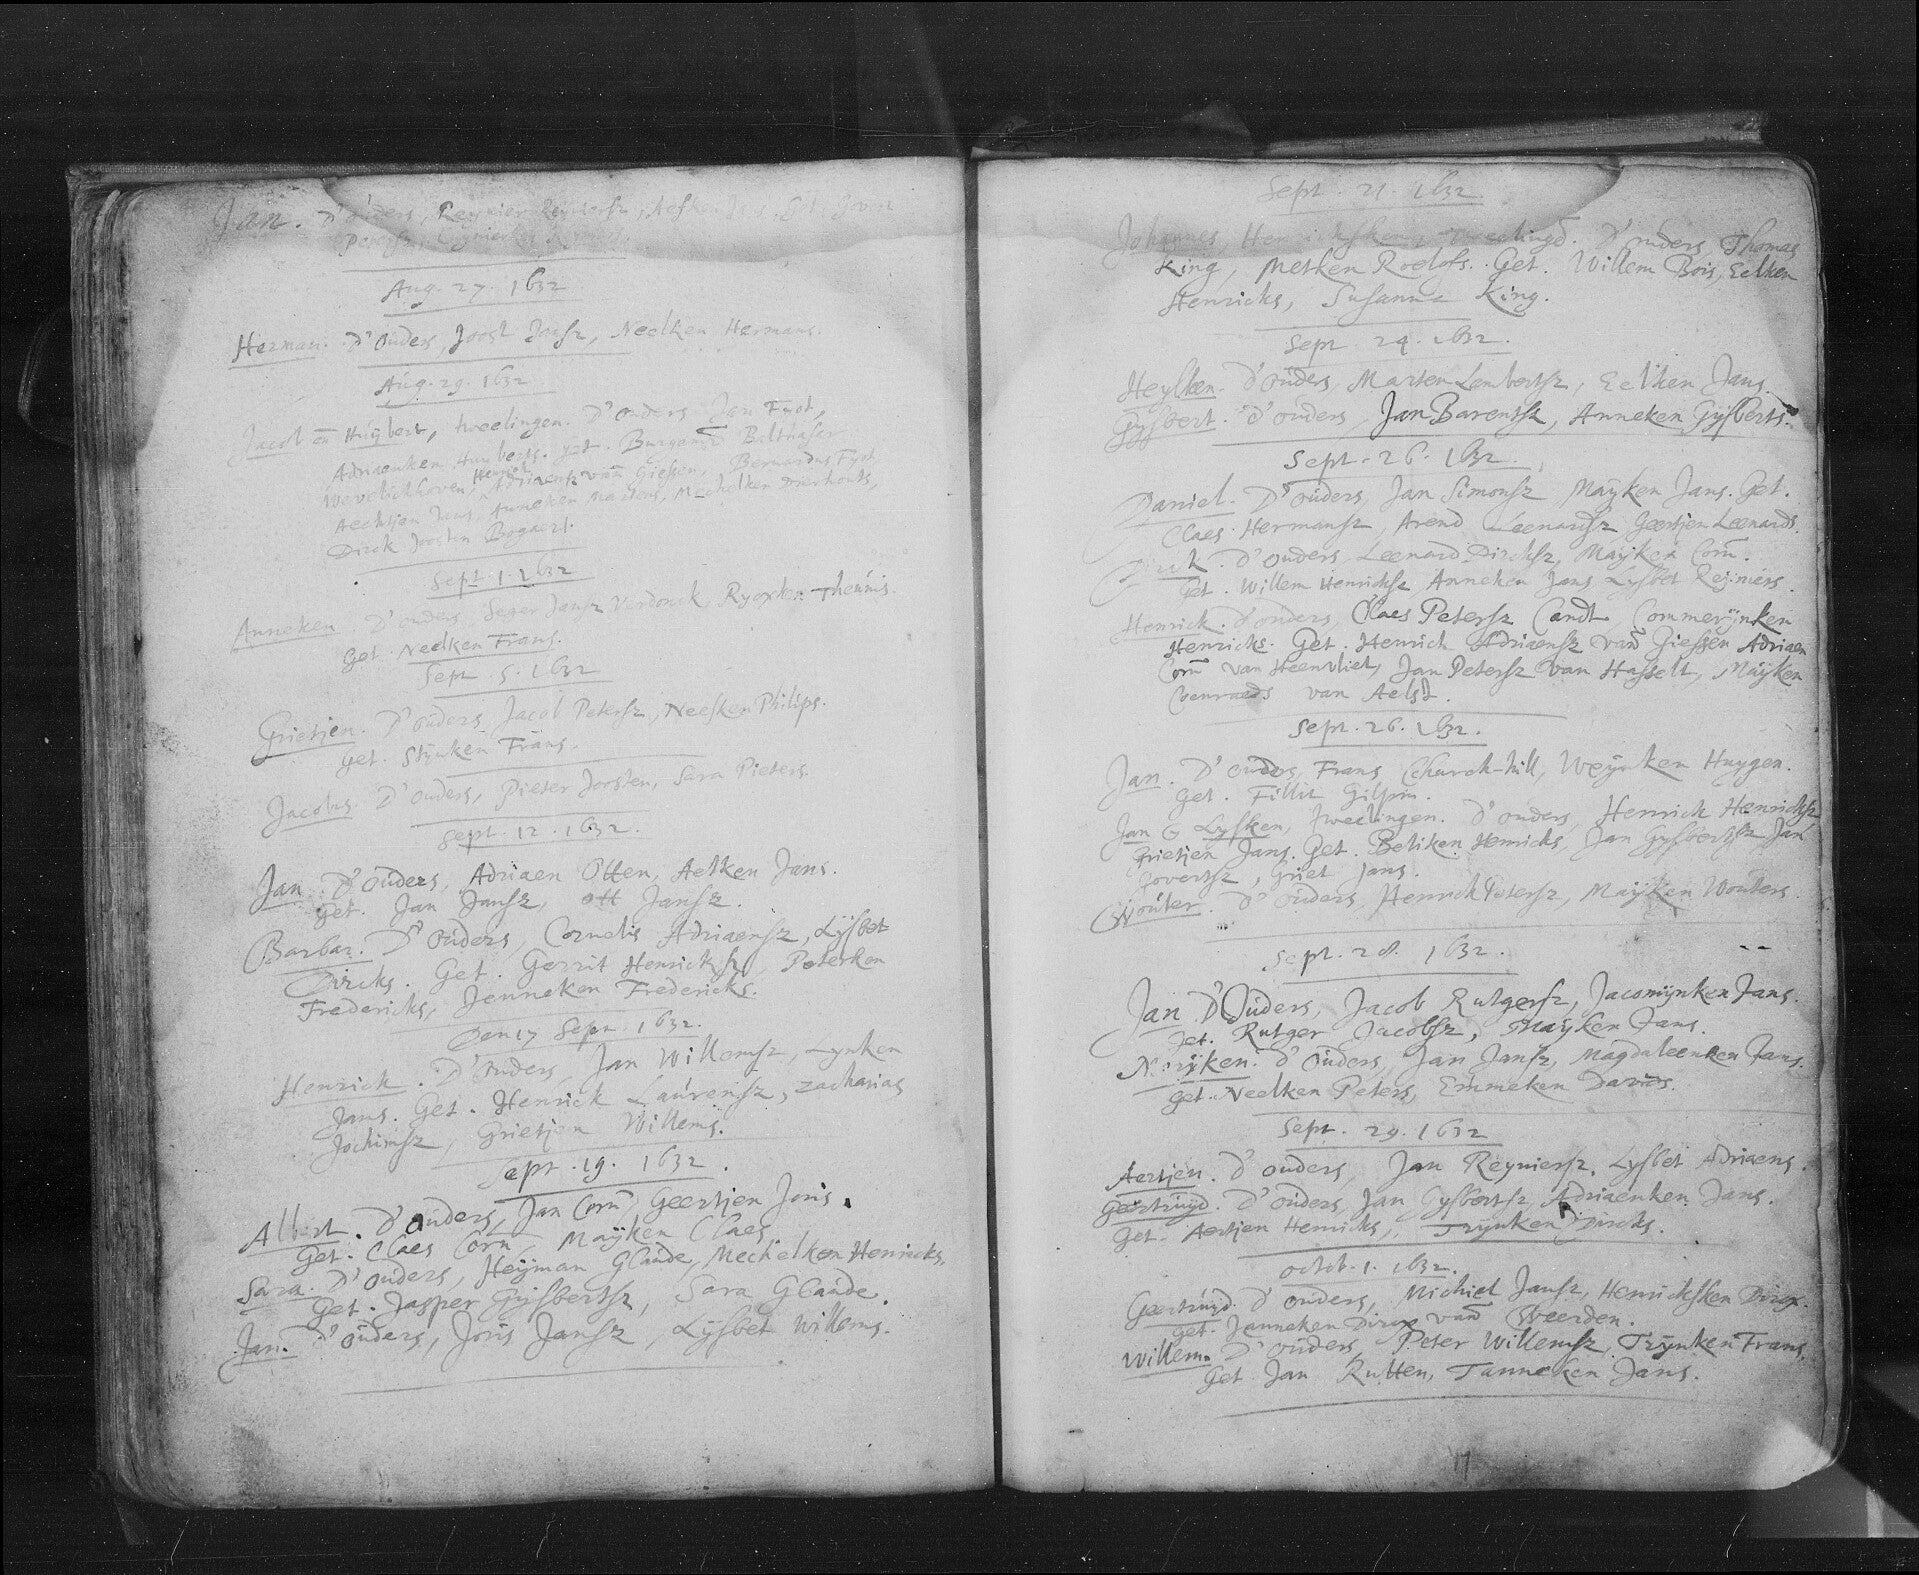 Jan. D'ouders, Reynier Reyniersz,
Aug. 27. 1632
Herman. D'Ouders, Joost Jansz, Neelken Hermans.
Aug. 29. 1632
Jacob en Huybert, tweelingen. D'ouders Jan Fyot,
Adriaenken Huyberts. get. Burgem Balthasar
Wevelichhoven, Henrick Adriaensz van Giessen, Bernardus Fyot
Aechtjen Jans, Anneken Martens, Mechelken Dierhouts,
Dirck Joosten Bogaert.
Sept. 1. 1632
Anneken. D'ouders, Seger Jansz Verdonck Ryexken Theunis.
Get. Neelken Frans.
Sept. 5. 1632
Grietjen. D'ouders, Jacob Petersz, Neesken Philips.
Get. Stynken Frans.
Jacobus. D'ouders, Pieter Joosten, Sara Pieters.
Sept. 12. 1632.
Jan. D'ouders, Adriaen Otten, Aelken Jans.
get. Jan Jansz, ott Jansz.
Barbar. D'ouders, Cornelis Adriaensz, Lysbet
Dircks. Get. Gerrit Henricksz, Peterken
Fredericks, Jenneken Fredericks.
Den 17 Sept. 1632.
Henrick. D'ouders, Jan Willemsz, Lynken
Jans. Get. Henrick Laurensz, Zacharias
Jochimsz, Grietjen Willems.
Sept. 19. 1632.
Albert. D'ouders, Jan Corn Geertjen Joris.
Get. Claes Corn, Mayken Claes,
Sara. D'ouders, Heyman Glaude, Mechelken Henricks.
Get. Jasper Gysbertsz, Sara Glaude.
Jan. D'ouders, Joris Jansz, Lysbet Willems.
Sept. 21. 1632
Johannes Henricksken, tweelingh. D'ouders Thomas
King, Metken Roelofs. Get. Willem Bois, Eelken
Henricks, Susanna King.
Sept 24. 1632.
Heylken. D'ouders, Marten Lambertsz, Eelken Jans.
Gysbert. D'ouders, Jan Barentsz, Anneken Gysberts.
Sept. 26. 1632.
Daniel. D'ouders, Jan Simonsz Mayken Jans. Get.
Claes Hermansz, Arend Leenardsz Geertjen Leenards.
Dirck. D'ouders, Leenard Dircksz, Mayken Corn.
Get. Willem Henricksz Anneken Jans Lysbet Reyniers.
Henrick. D'ouders, Claes Petersz Candt, Commerynken
Henricks. Get. Henrick Adriaensz van Giessen Adriaen
Corn van Heenvliet, Jan Petersz van Hasselt, Mayken
Coenraeds van Aelst.
Sept. 26. 1632.
Jan. D'ouders, Frans Church-hill, Weynken Huygen.
Get. Fillit Gilpin.
Jan & Lysken, tweelingen. D'ouders, Henrick Henricksz
Grietjen Jans. Get. Beliken Henricks, Jan Gysbertsz Jan
Govertsz, Griet Jans.
Wouter. D'ouders, Henrick Petersz, Mayken Wouters.
Sept. 28. 1632.
Jan. D'ouders, Jacob Rutgersz, Jacomynken Jans.
Get. Rutger Jacobsz, Mayken Jans.
Maryken. D'ouders, Jan Jansz, Magdaleenken Jans.
get. Neelken Peters, Emmeken Davids.
Sept. 29. 1632
Aertjen. D'ouders, Jan Reyniersz, Lysbet Adriaens.
Geertruyd. D'ouders, Jan Gysbertsz, Adriaenken Jans.
Get. Aertjen Henricks, Trynken Dircks.
Octob. 1. 1632.
Geertruyd. D'ouders, Michiel Jansz, Henricksken Dirx.
get. Janneken Dirx van Weerden.
Willem. D'ouders, Peter Willemsz, Trynken Frans.
Get. Jan Rutten, Tanneken Jans.
17